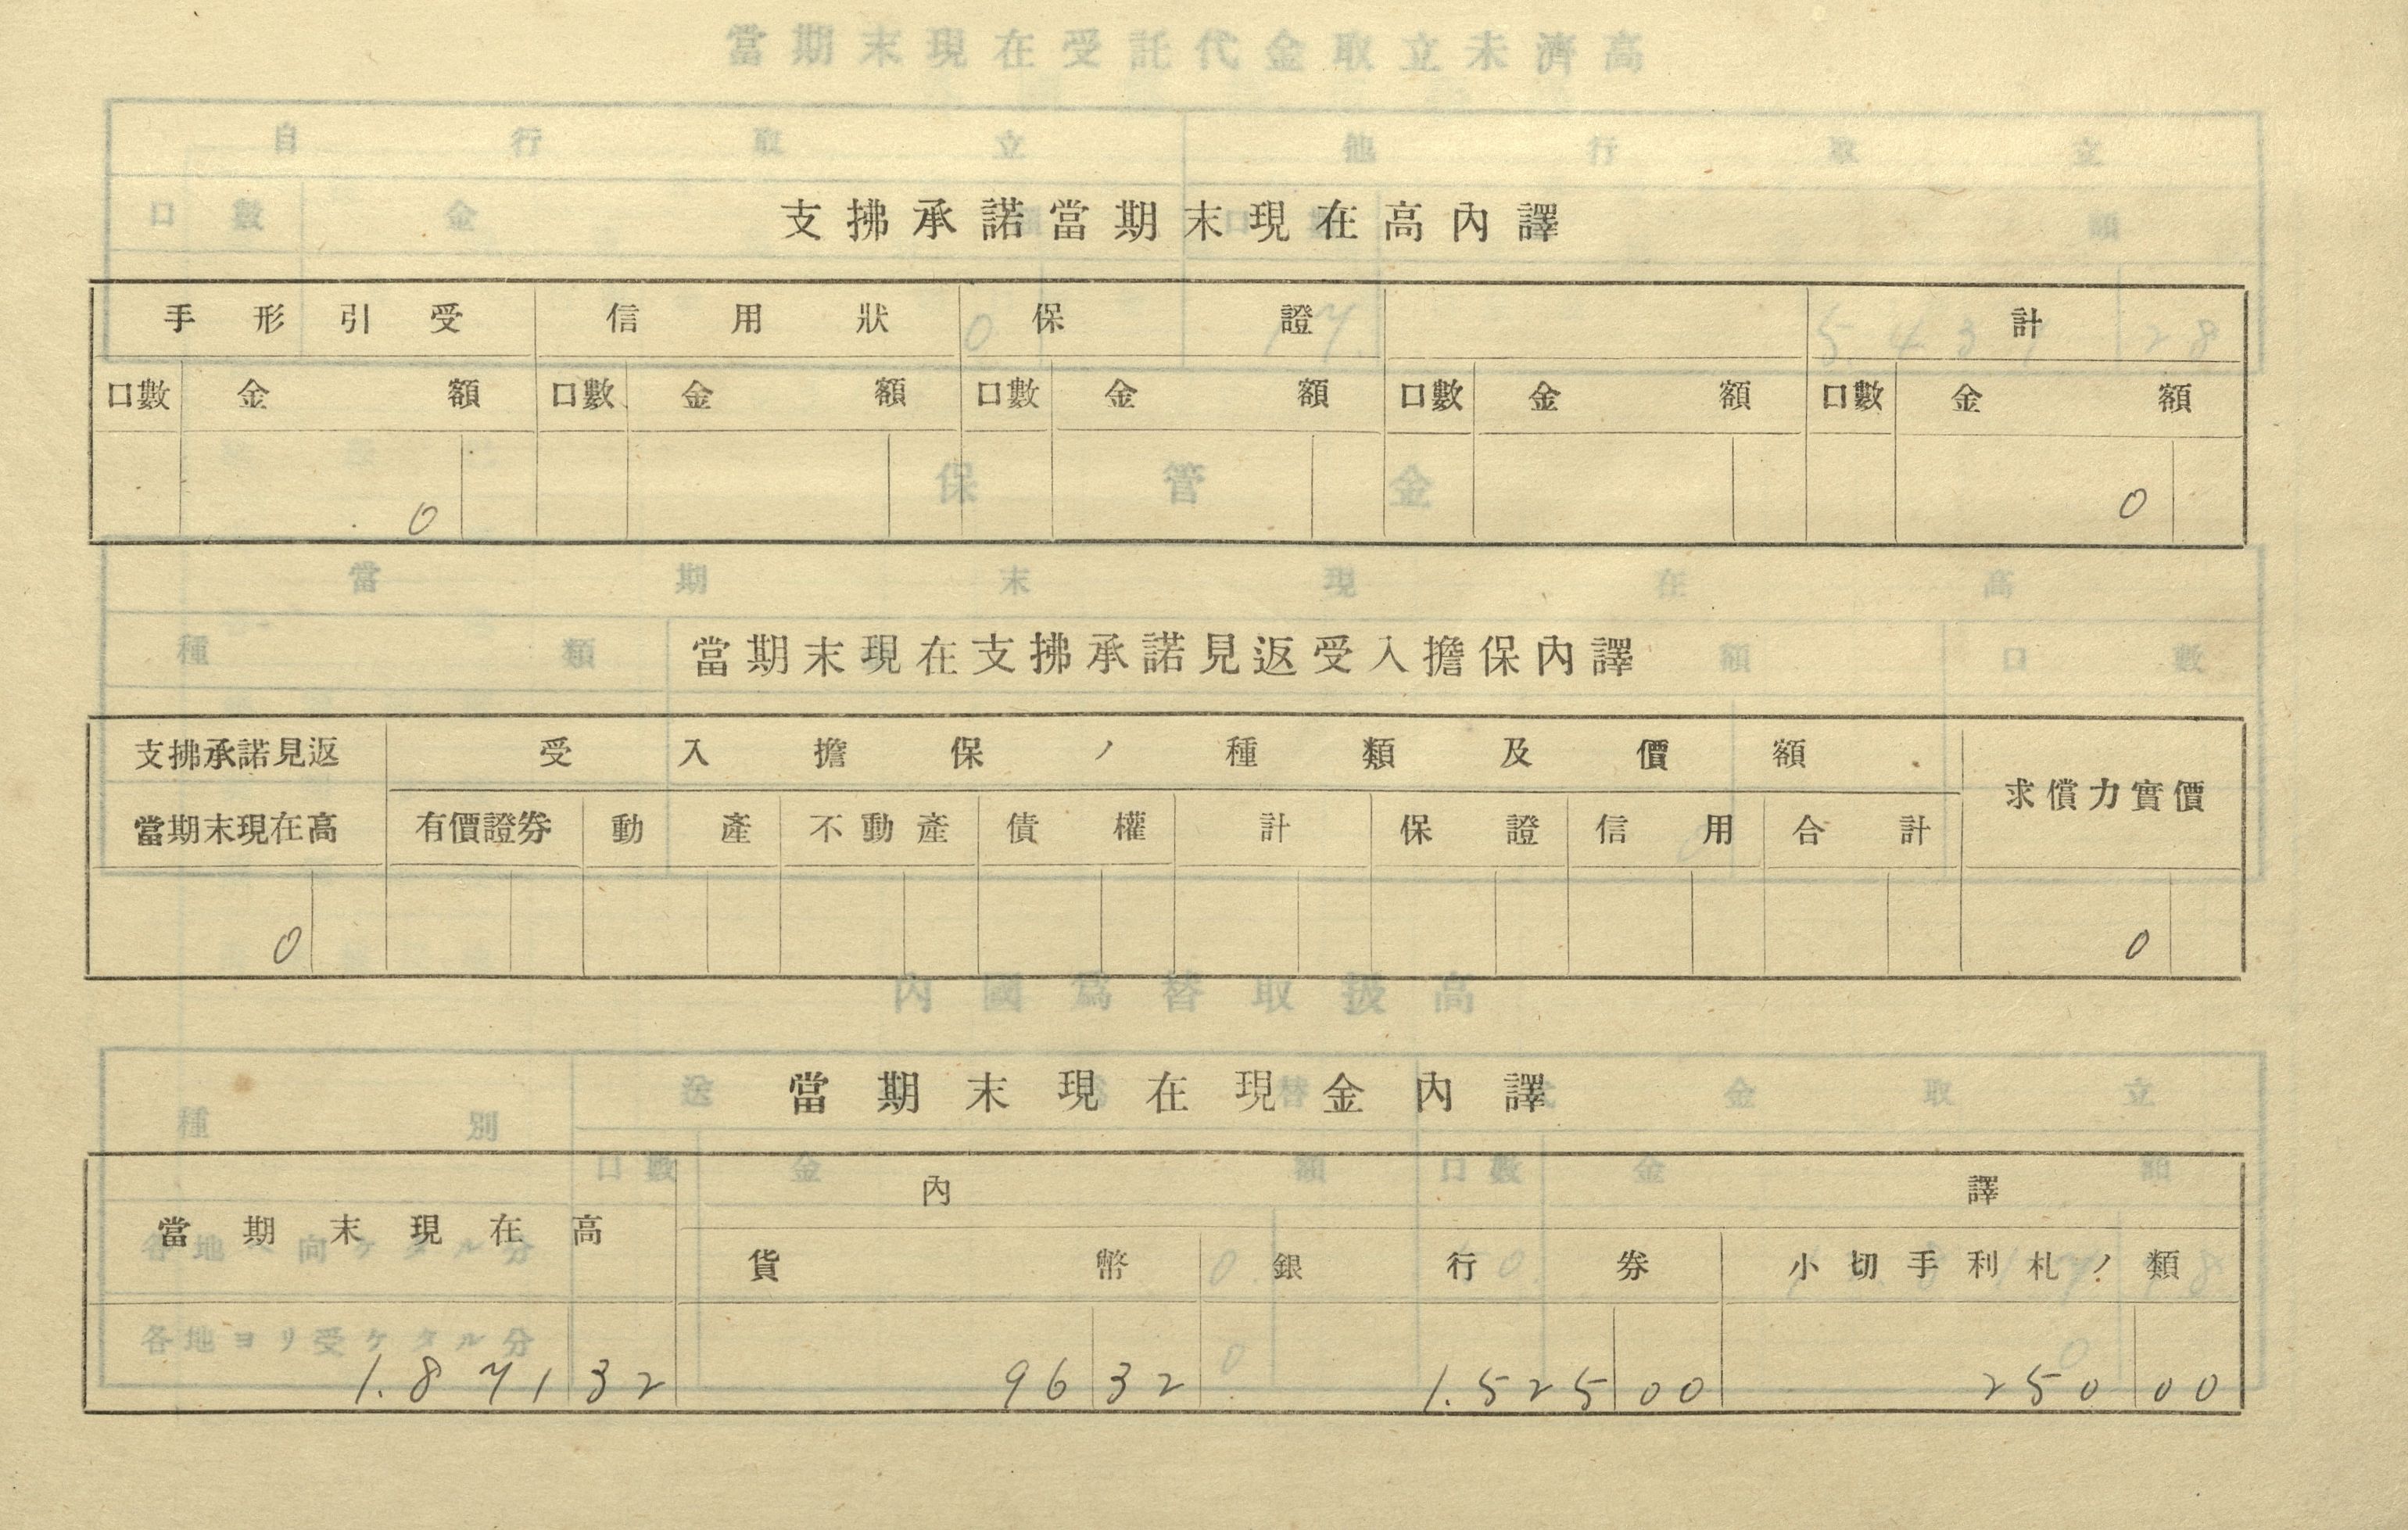 支拂承諾當期末現在高內譯
手形引受 信用狀 保證 計
口數 金額 口數 金額 口數 金額 口數 金額 口數 金額
0 0
當期末現在支拂承諾見返受入擔保內譯
支拂承諾見返 受入擔保ノ種類及價額 求償力實價
當期末現在高 有價證券 動產 不動產 債權 計 保證 信用 合計
0 0
當期末現在現金內譯
當期末現在高 內譯
貨幣 銀行券 小切手利札ノ類
1.871 32 96 32 1.525 00 250 00